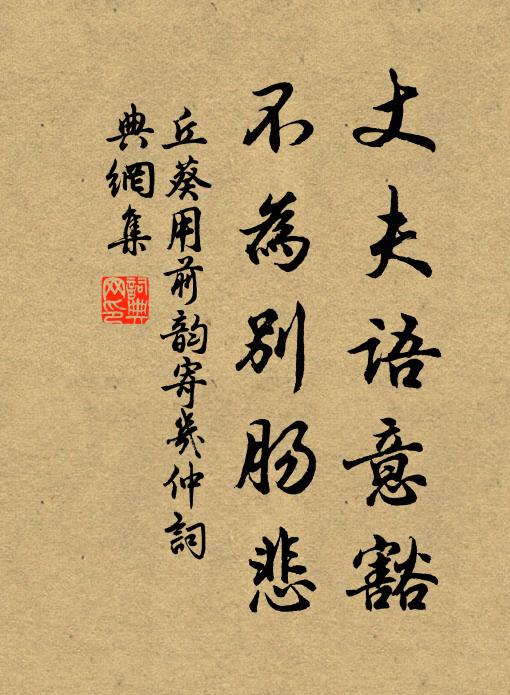 丈夫語意豁
不為別肠悲
丘葵用前韵寄幾仲詞
典網集
詞典
网印